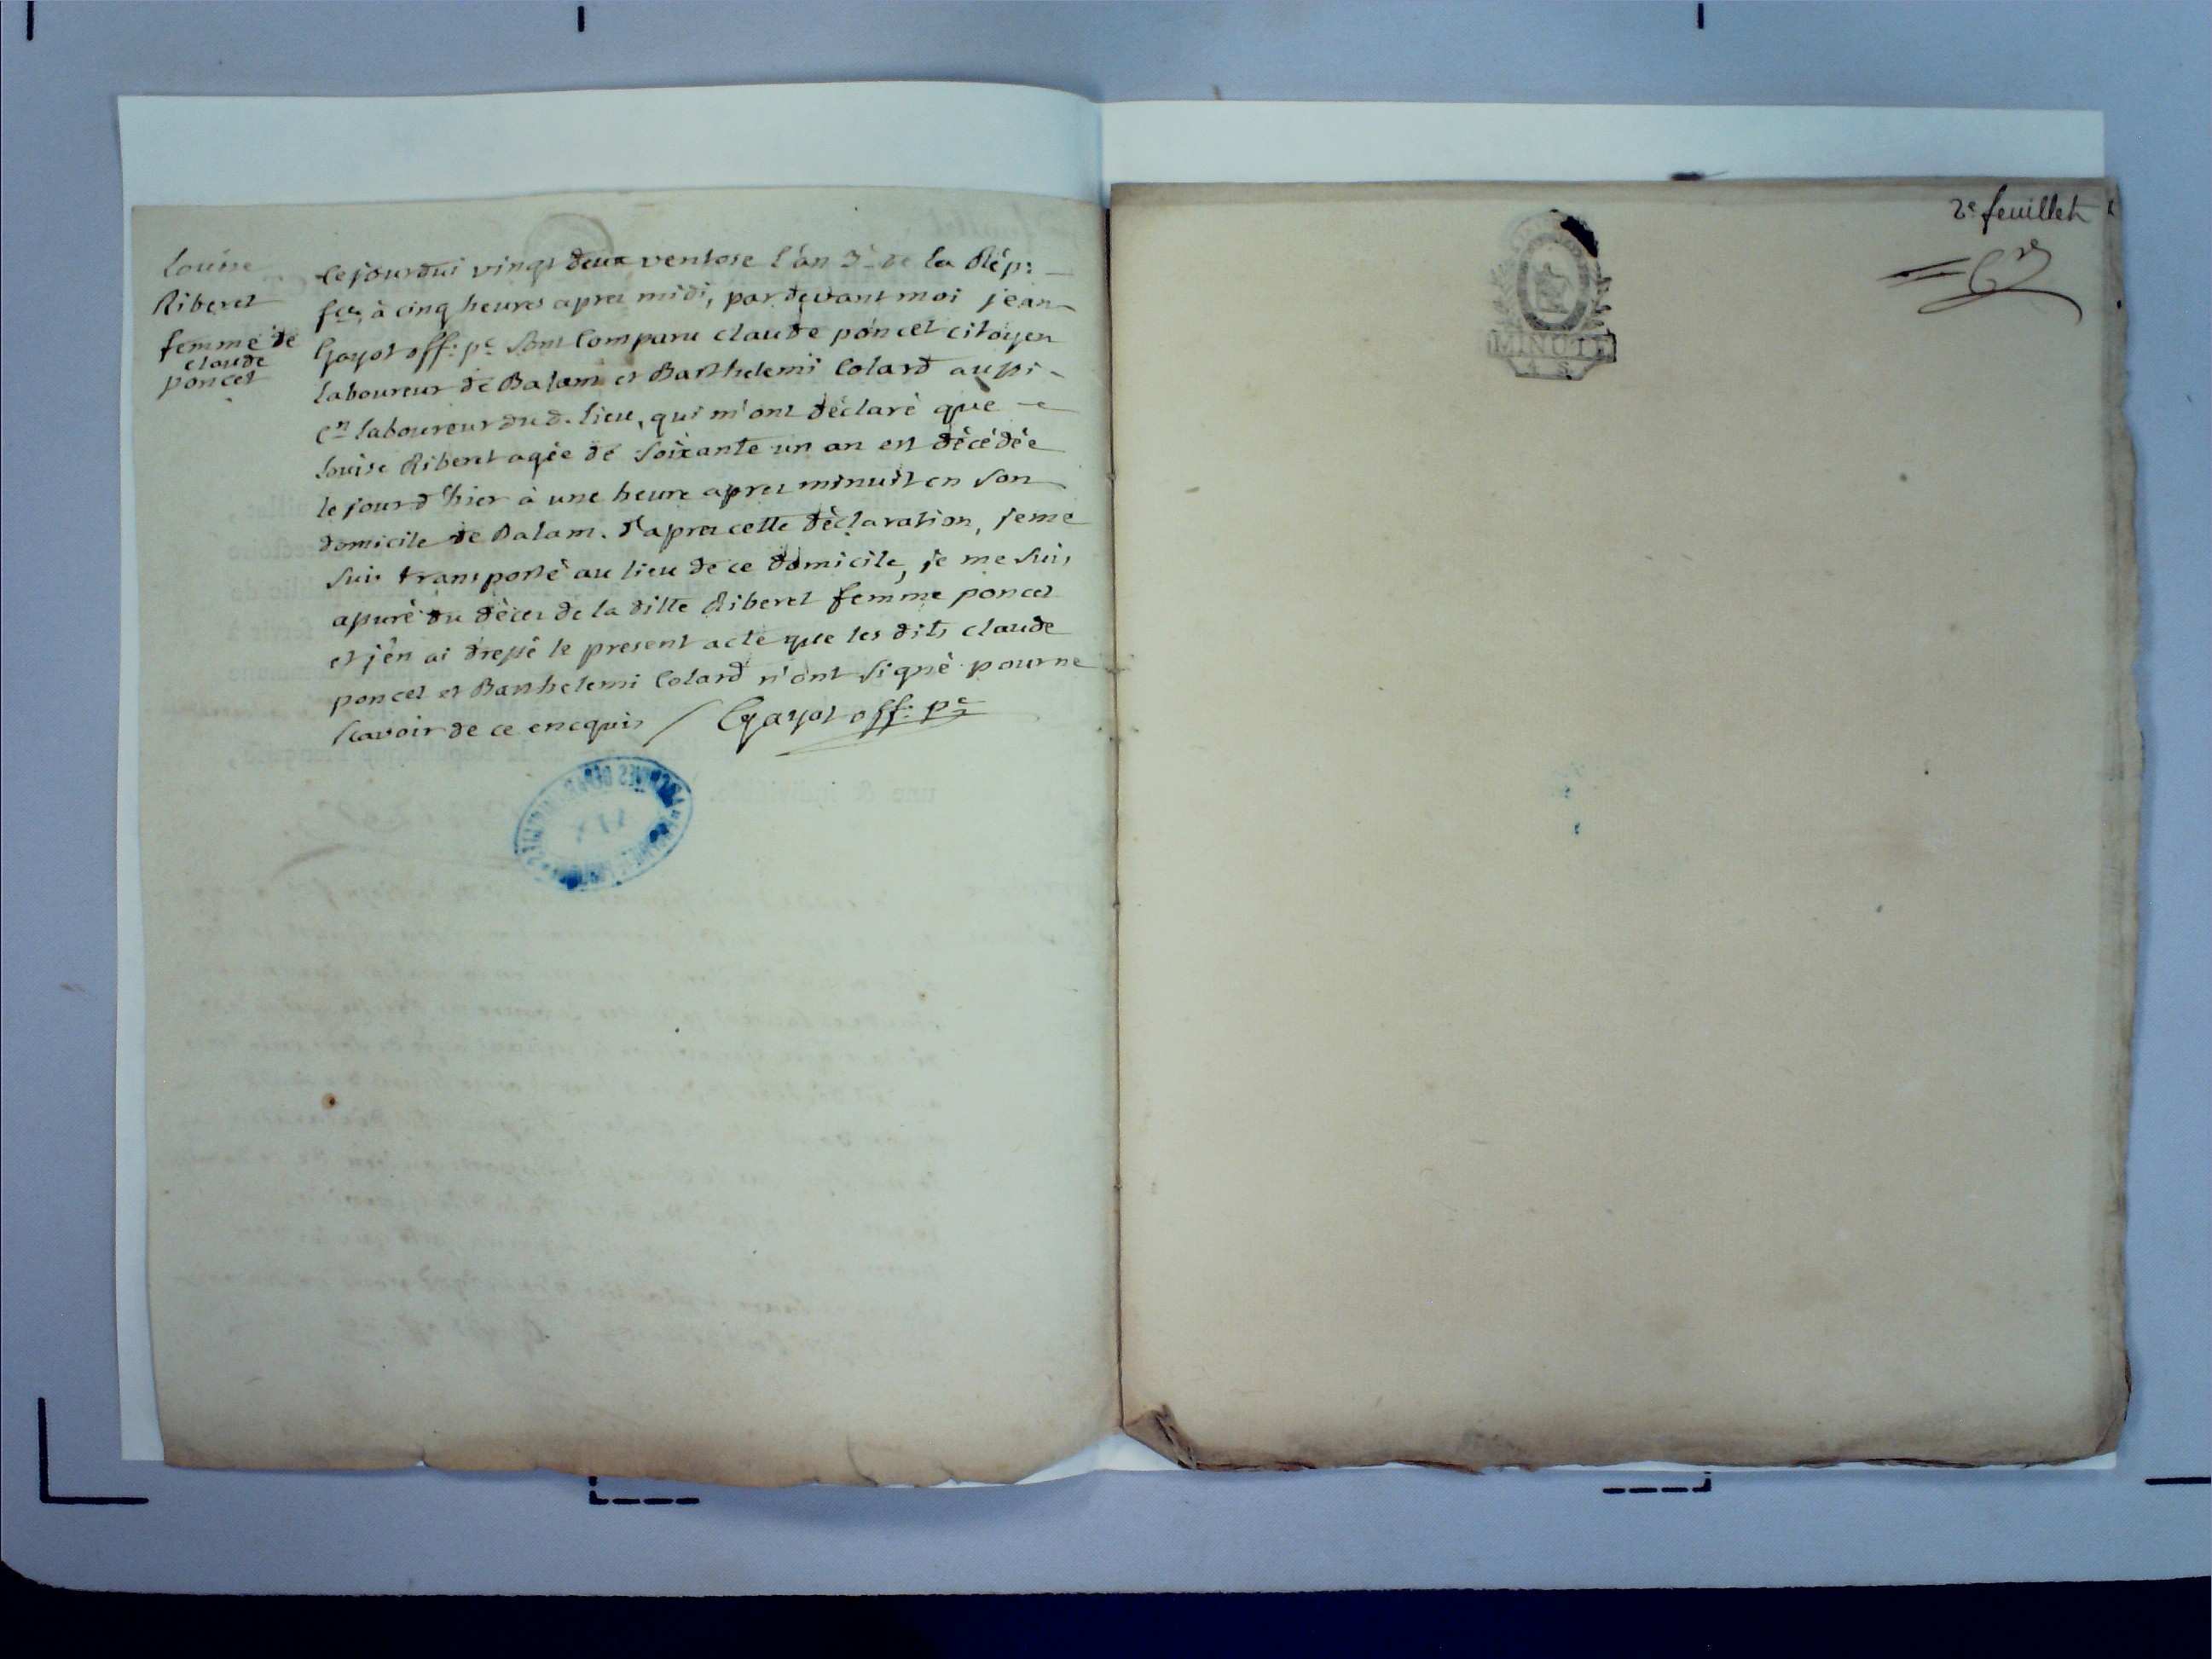 Louise
Riberet
femme de
claude
poncet
Cejourdui vingt deux ventose l'an 3e de la Rép:
fce, à cinq heures apres midi, pardevant moi jean
Gayot off: pc sont Comparu claude poncet citoyen
laboureur de Balam et Barthelemi Colard aussi
cn laboureur dud. lieu, qui m'ont déclaré que
Louise Riberet agée de soixante un an est décédée
le jourd'hier à une heure apres minuit en son
domicile de Balam. d'apres cette déclaration, je me
suis transporté au lieu de ce domicile, je me suis
assuré du déces de la ditte Riberet femme poncet
et j'en ai dressé le present acte que les dits claude
poncet et Barthelemi Colard n'ont signé pour ne
scavoir de ce encquis / Gayot off: pc
2e feuillet
MINUTE
4 S.